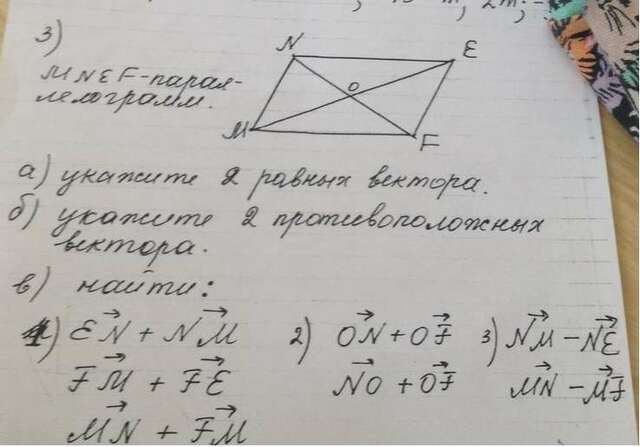 3)
MNEF-парал-
лелограмм.
N
E
O
M
F
а) укажите 2 равных вектора.
б) укажите 2 противоположных
вектора.
в) найти:
1) EN + NM 2) ON + OF 3) NM - NE
FM + FE NO + OF MN - MF
MN + FM